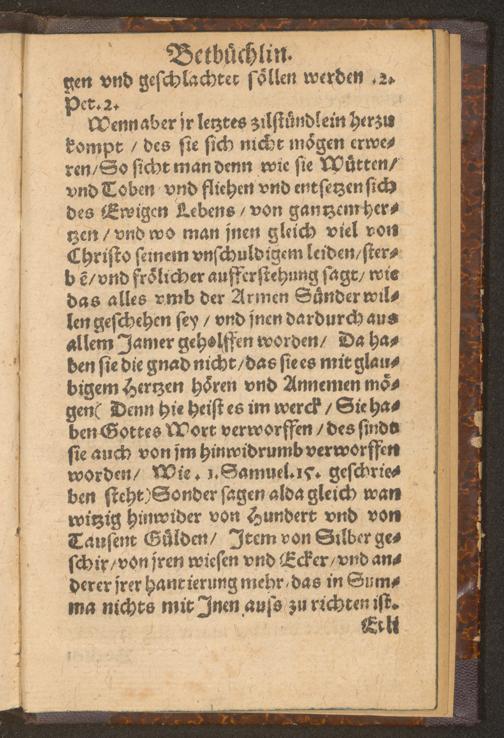 Betbüchlin.
gen vnd geschlachtet söllen werden .2.
Pet.2.
Wenn aber jr letztes zilstündlein herzu
kompt / des sie sich nicht mögen erwe⸗
ren / So sicht man denn wie sie Wütten /
vnd Toben vnd fliehen vnd entsetzen sich
des Ewigen Lebens / von gantzem her⸗
tzen / vnd wo man jnen gleich viel von
Christo seinem vnschuldigem leiden / ster⸗
bẽ / vnd frölicher aufferstehung sagt / wie
das alles vmb der Armen Sünder wil⸗
len geschehen sey / vnd jnen dardurch aus
allem Jamer geholffen worden / Da ha⸗
ben sie die gnad nicht / das sie es mit glau⸗
bigem Hertzen hören vnd Annemen mö⸗
gen( Denn hie heist es im werck / Sie ha⸗
ben Gottes Wort verworffen / des sindt
sie auch von jm hinwidrumb verworffen
worden / Wie . 1. Samuel. 15. geschrie⸗
ben steht) Sonder sagen alda gleich wan
witzig hinwider von Hundert vnd von
Tausent Gülden / Item von Silber ge⸗
schir / von jren wiesen vnd Ecker / vnd an⸗
derer jrer hantierung mehr / das in Sum⸗
ma nichts mit Jnen auss zu richten ist.
Etli